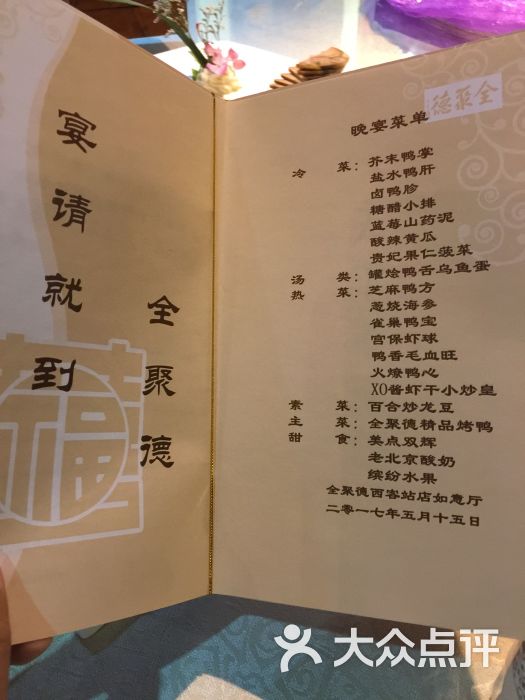 宴请就到
全聚德
福
全聚德
晚宴菜单
冷菜：芥末鸭掌
盐水鸭肝
卤鸭胗
糖醋小排
蓝莓山药泥
酸辣黄瓜
贵妃果仁菠菜
汤类：罐烩鸭舌乌鱼蛋
热菜：芝麻鸭方
葱烧海参
雀巢鸭宝
宫保虾球
鸭香毛血旺
火燎鸭心
XO酱虾干小炒皇
素菜：百合炒龙豆
主菜：全聚德精品烤鸭
甜食：美点双辉
老北京酸奶
缤纷水果
全聚德西客站店如意厅
二零一七年五月十五日
大众点评